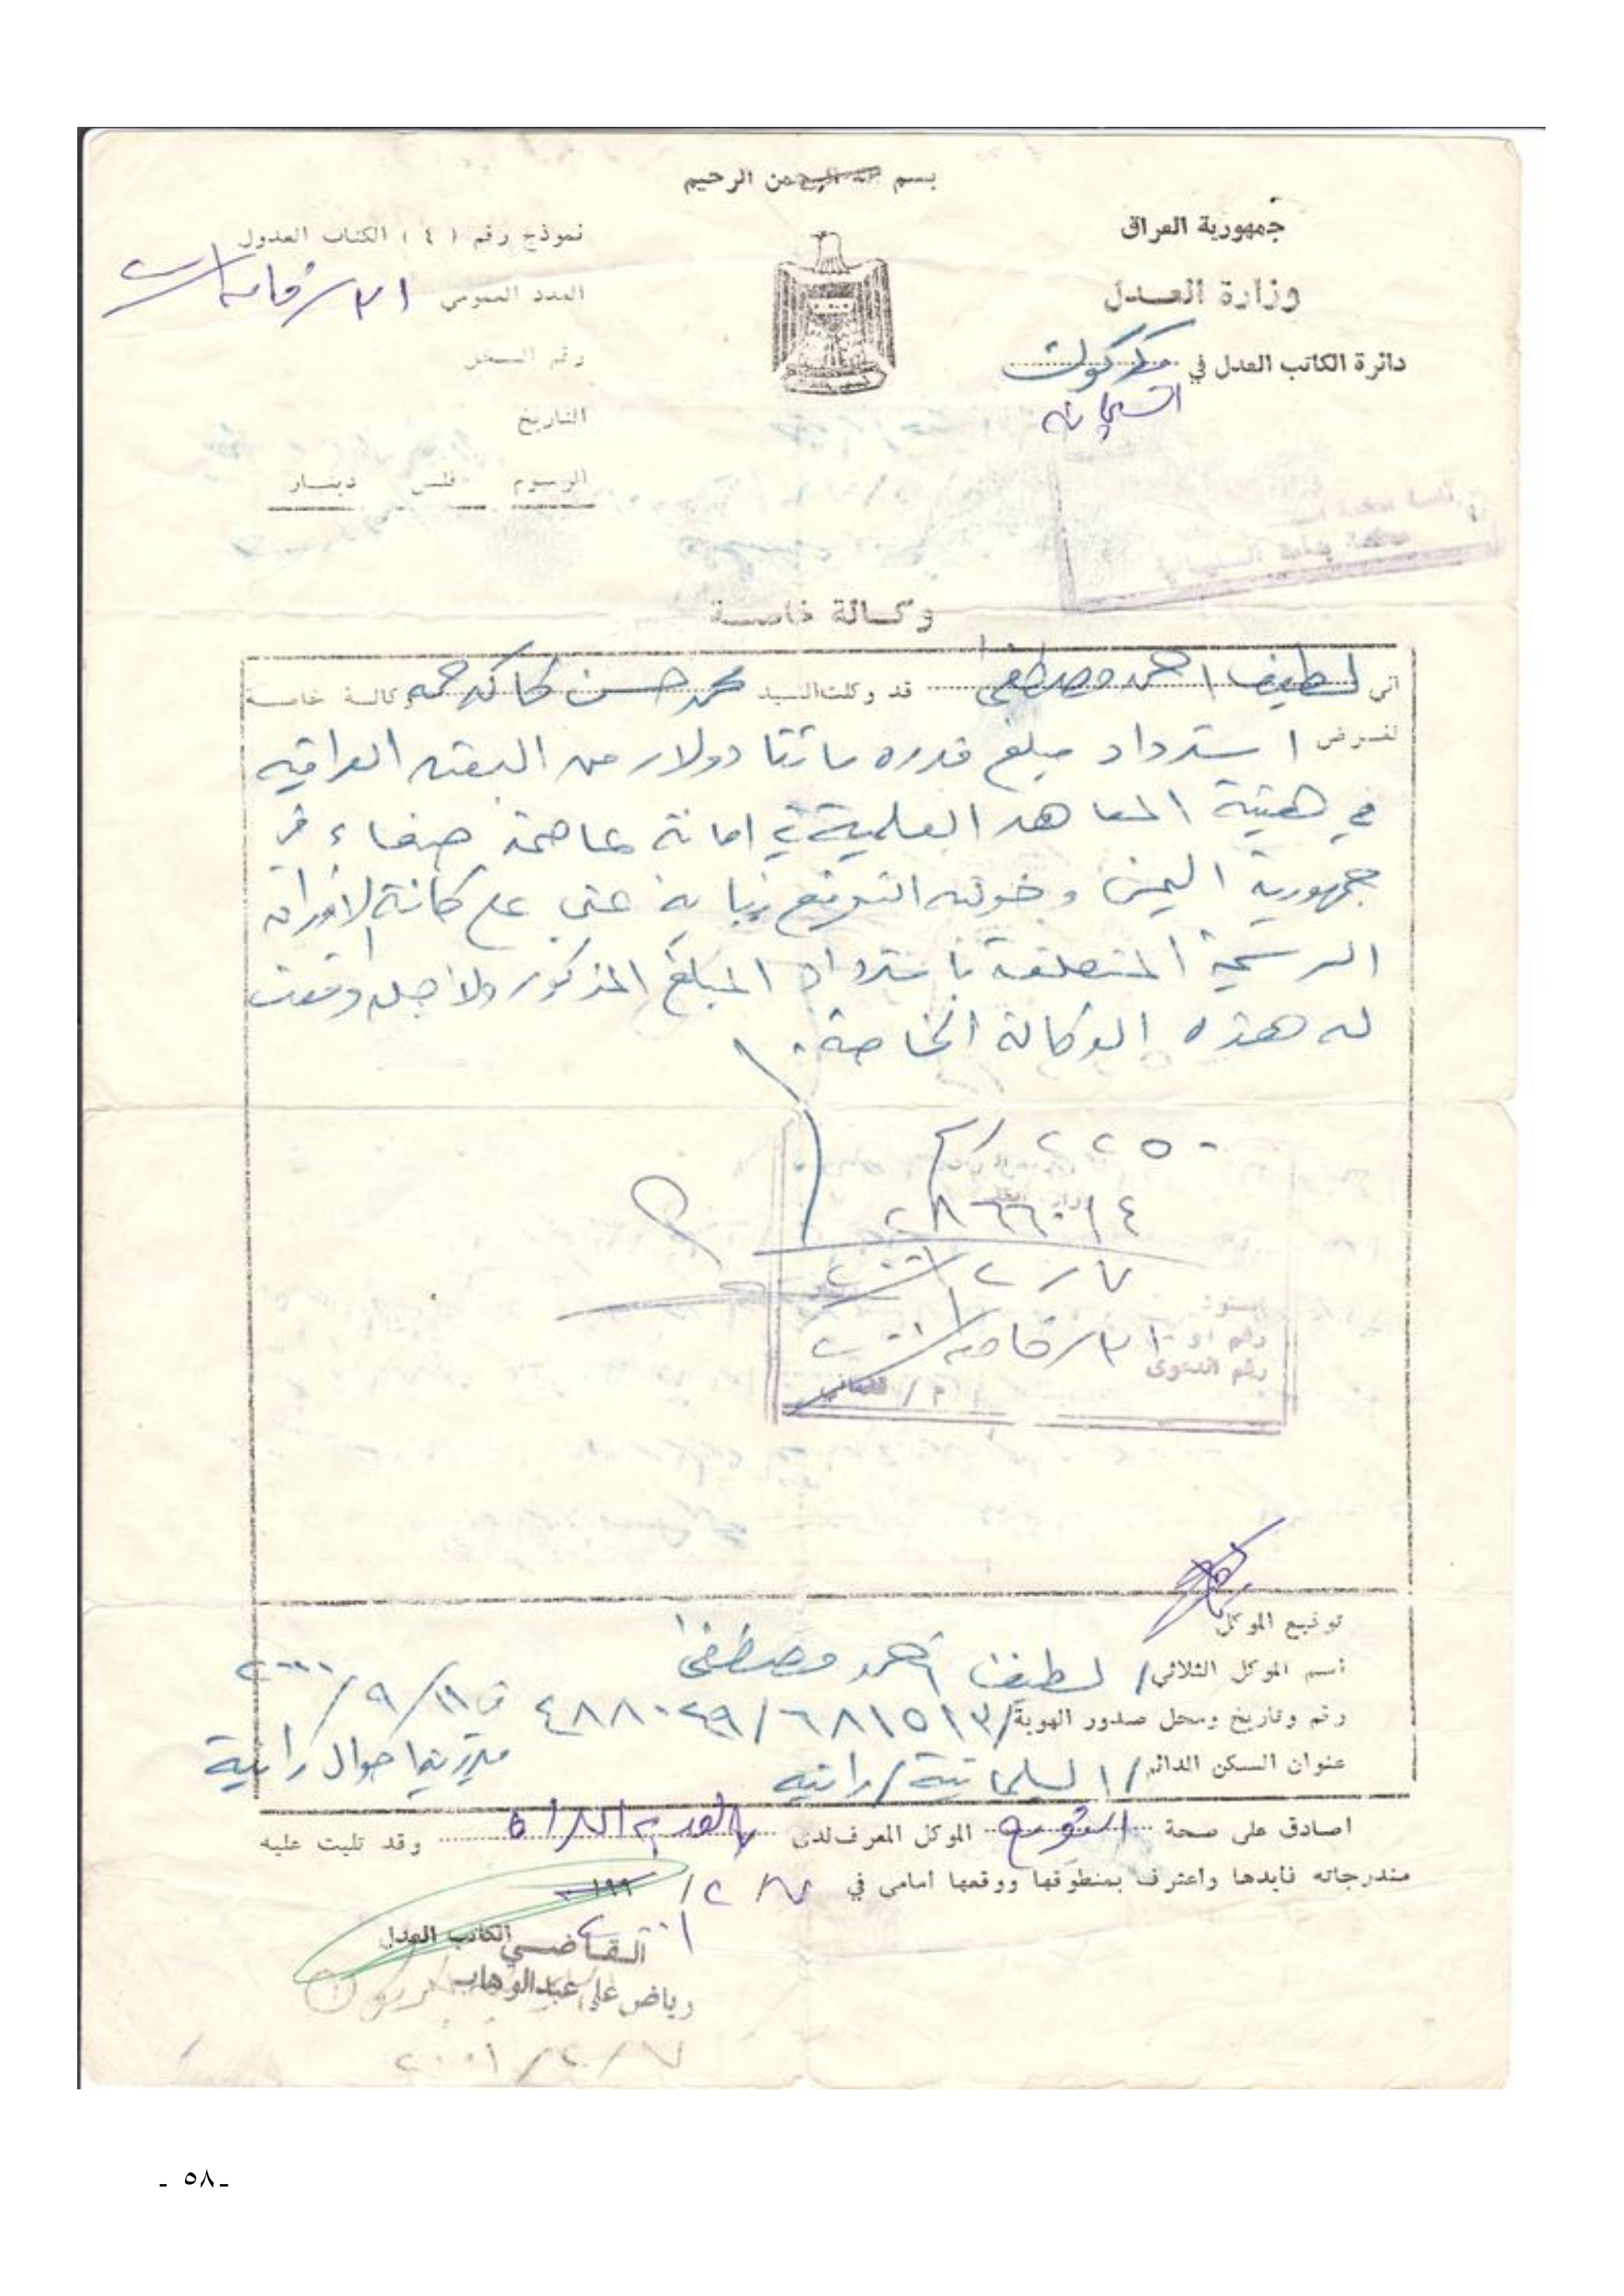 بسم الله الرحمن الرحيم
جمهورية العراق
وزارة العدل
دائرة الكاتب العدل في كركوك
السليمانية
نموذج رقم ( ٤ ) الكتاب العدول
العدد العمومي
رقم السجل
التاريخ
الرسوم فلس دينار
وكالة خاصة
اني لطيف احمد مصطفى قد وكلت السيد محمد حسن كاكه حمه وكالة خاصة
لغرض استرداد مبلغ قدره مائتا دولار من البعثه العراقيه
في هيئة المعاهد العلمية في امانة عاصمة صنعاء في
جمهورية اليمن و خولته التوقيع نيابة عني على كافة الاوراق
الرسمية المتعلقة باسترداد المبلغ المذكور ولاجله وقعت
له هذه الوكالة الخاصة .
٢٢٥٠
٢٨٦٦٠١٤
٧ / ٢ / ٢٠٠١
رقم الدعوى
توقيع الموكل
أسم الموكل الثلاثي / لطيف احمد مصطفى
رقم وتاريخ ومحل صدور الهوية / ٦٨١٥١٣ / ٤٨٨٠٢٩ في ١١ / ٩ / ٢٠٠٠
عنوان السكن الدائم / السليمانية / رانيه احوال رانية
اصادق على صحة الموكل المعرف لدى وقد تليت عليه
مندرجاته فايدها واعترف بمنطوقها ووقعها امامي في ٧ / ٢ / ١٩٩
٢٠٠١
الكاتب العدل
القاضي
رياض علي عبدالوهاب
٧ / ٢ / ٢٠٠١
- ٥٨ -